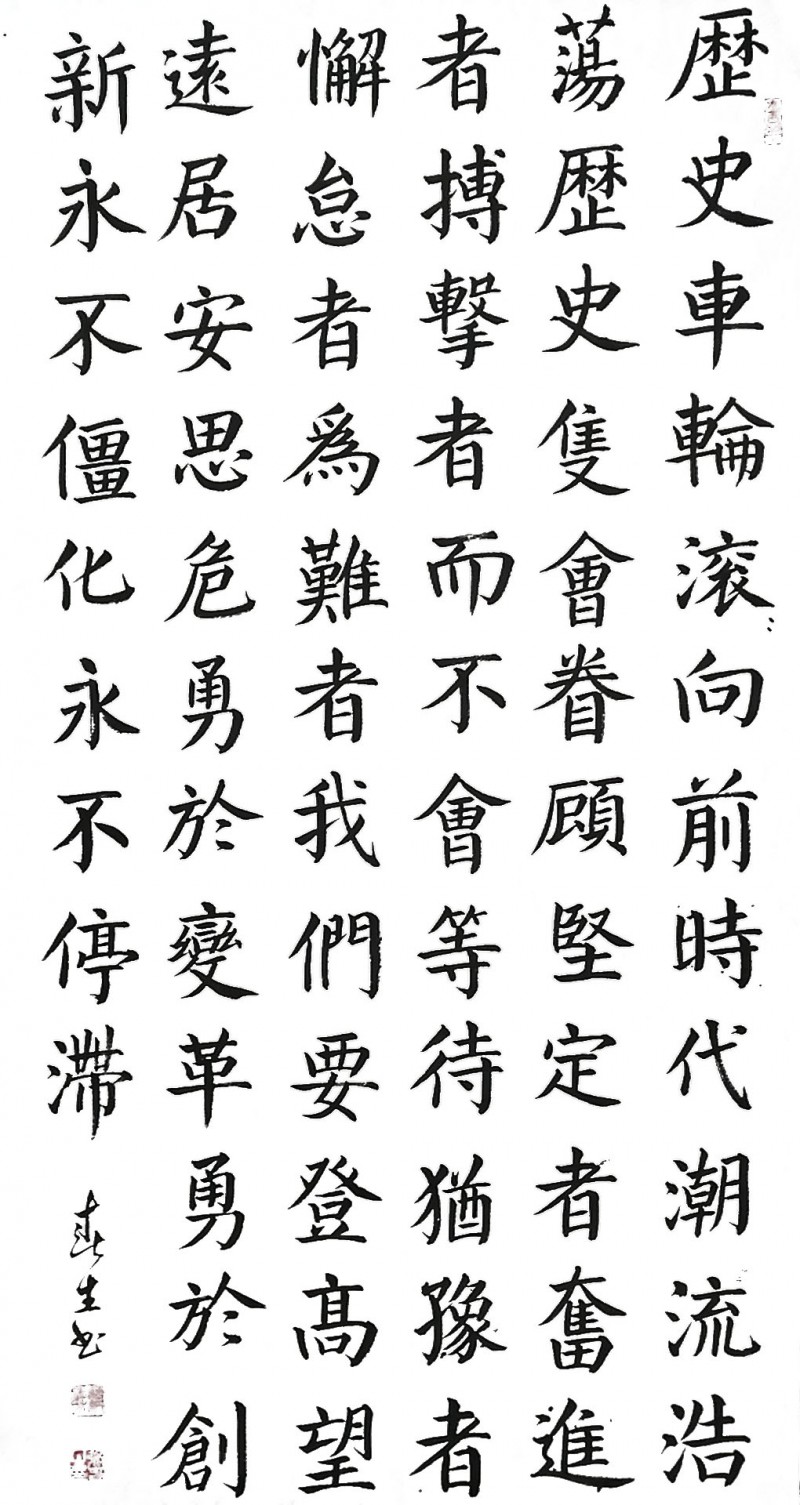 歴史車輪滚向前時代潮流浩
蕩歴史隻會眷顧堅定者奮進
者搏擊者而不會等待猶豫者
懈怠者爲難者我們要登髙望
遠居安思危勇於變革勇於創
新永不僵化永不停滯
生书